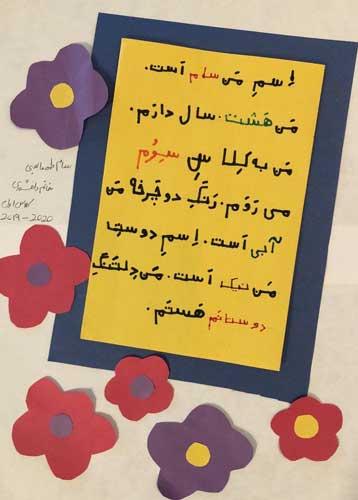 اِسمِ مَن سام اَست.
مَن هَشت سال دارَم.
مَن به کِلاسِ سِوُم
می رَوَم. رَنگِ دوچَرخه مَن
آبی اَست. اِسمِ دوست
مَن نیک اَست. مَن دِلتَنگِ
دوستانَم هَستَم.
سام
خانم
کلاس اول
2019-2020